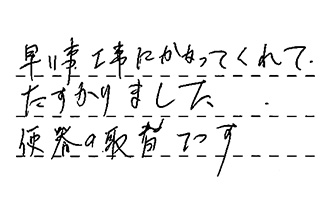 早い事工事にかかってくれて.
たすかりました.
便器の取替てつす